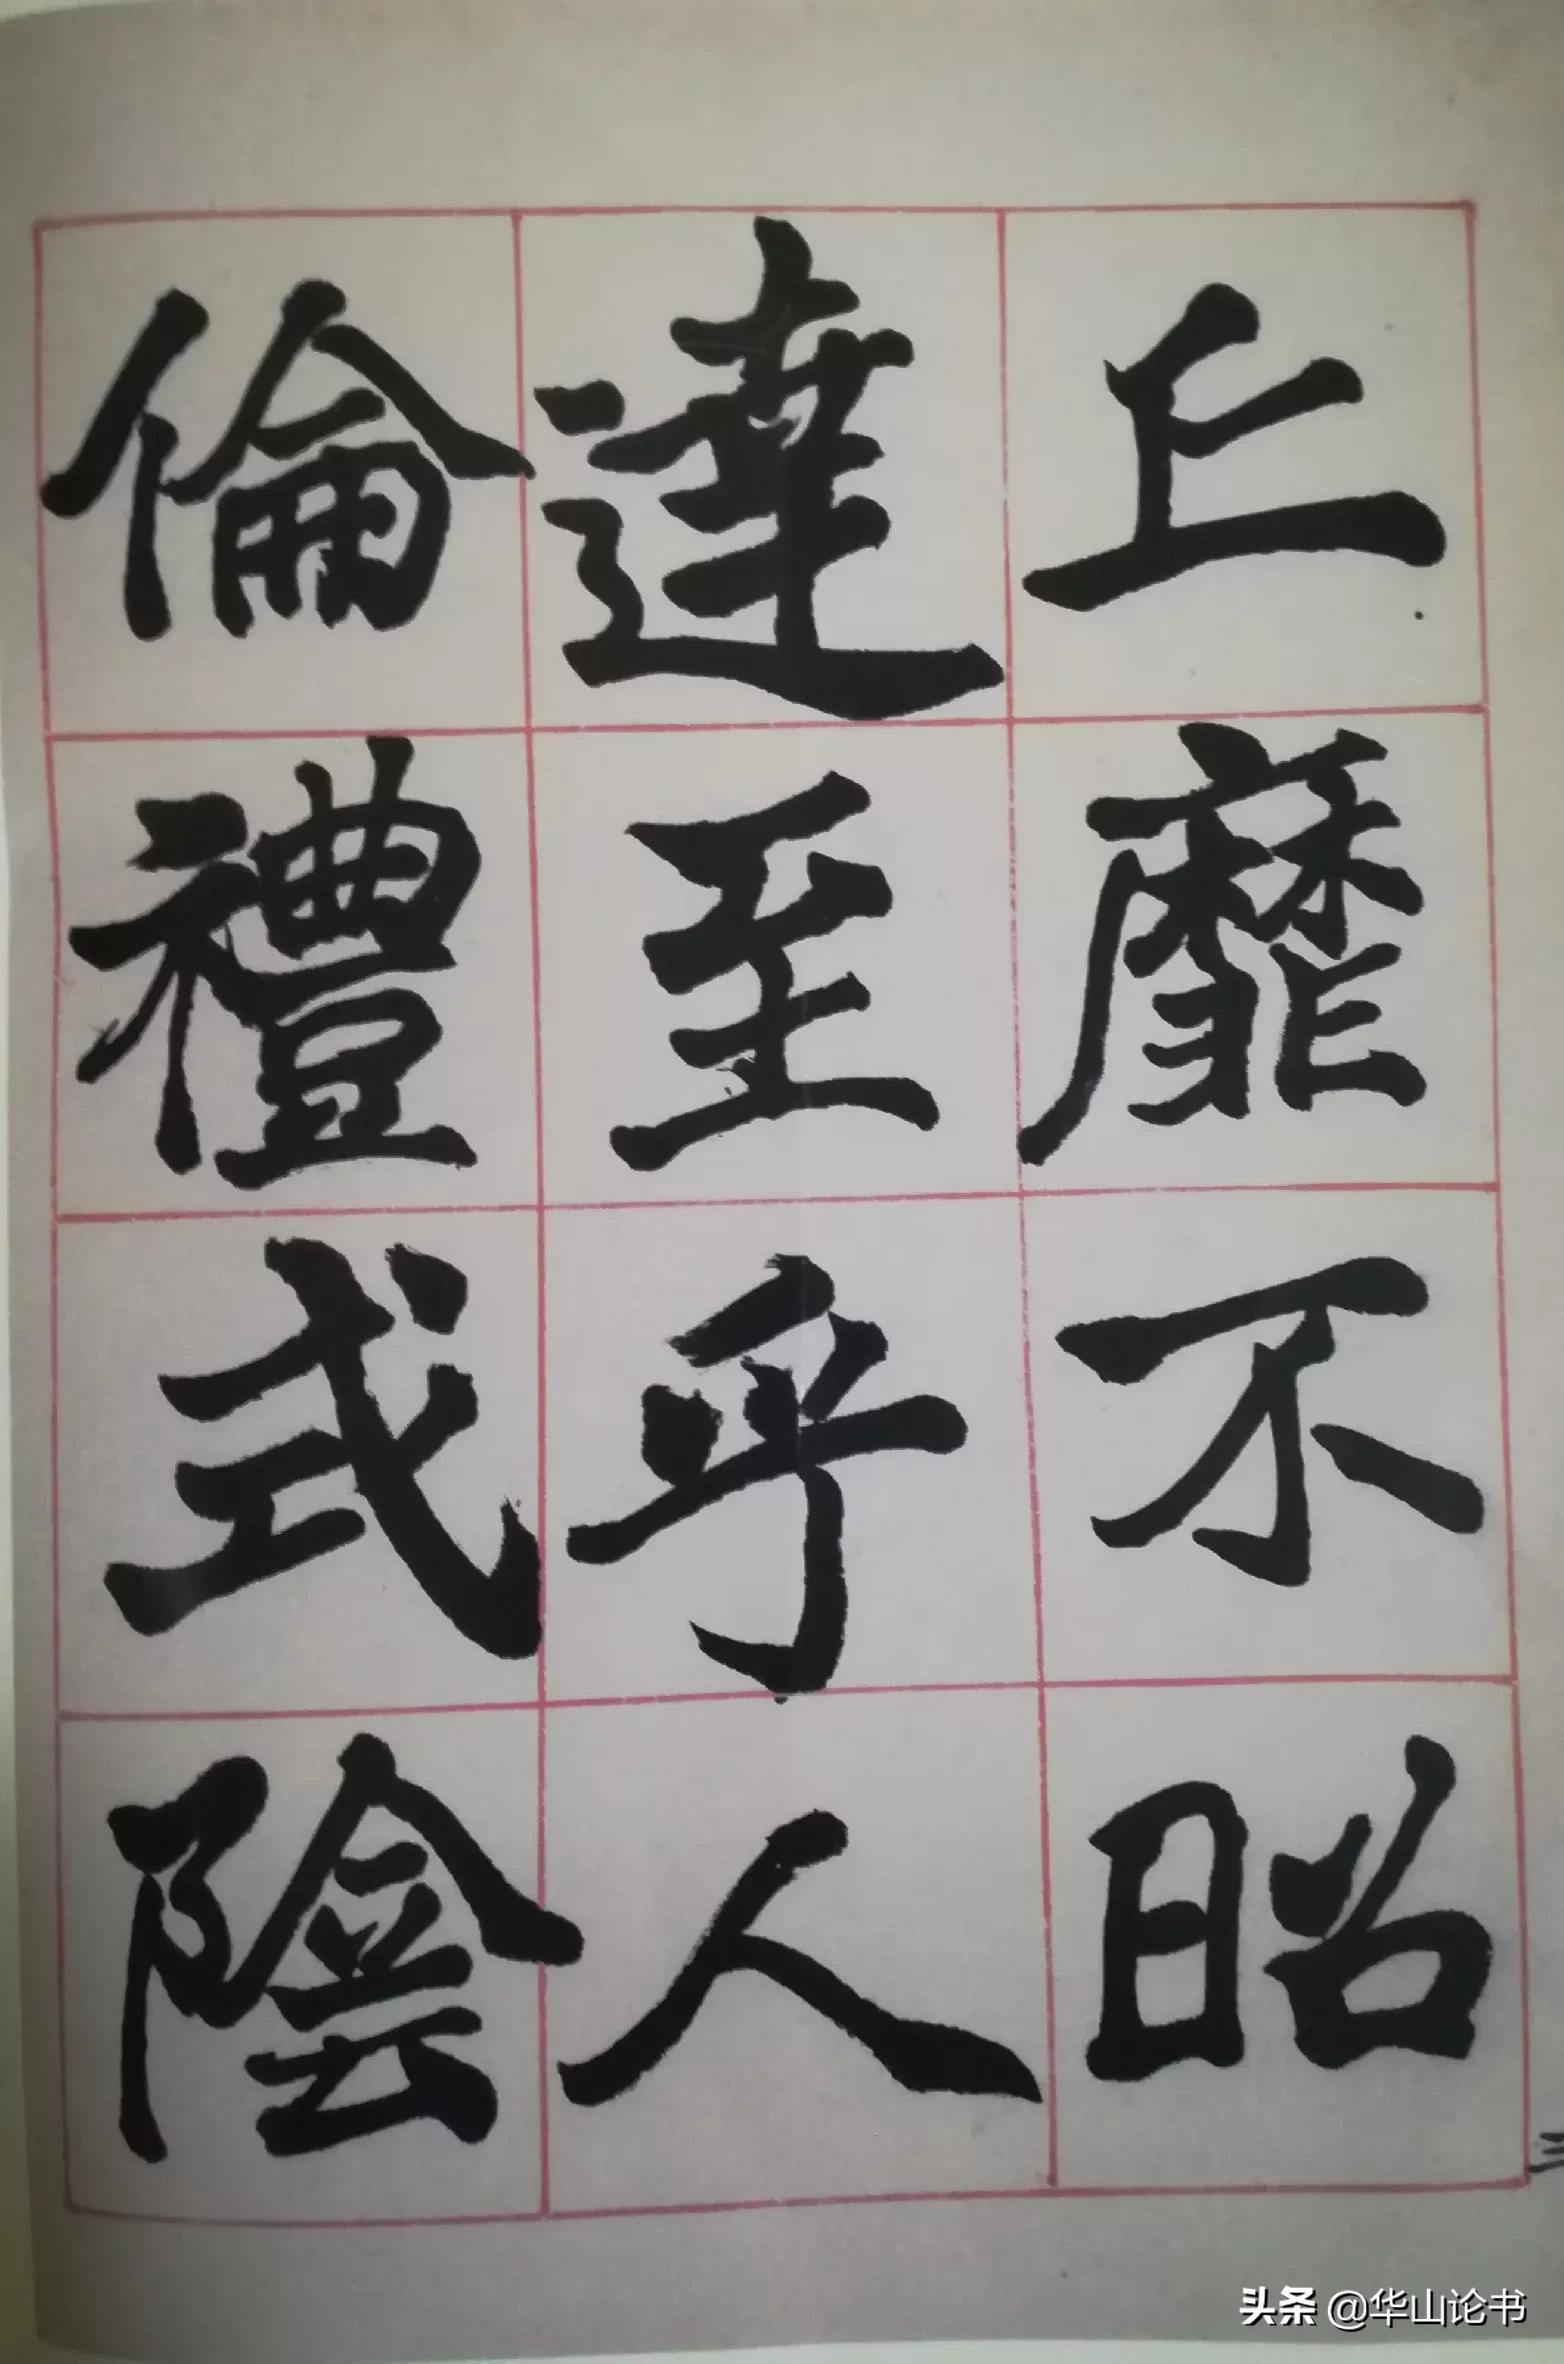 上靡不昭
達至乎人
倫禮式陰
三
头条 @华山论书